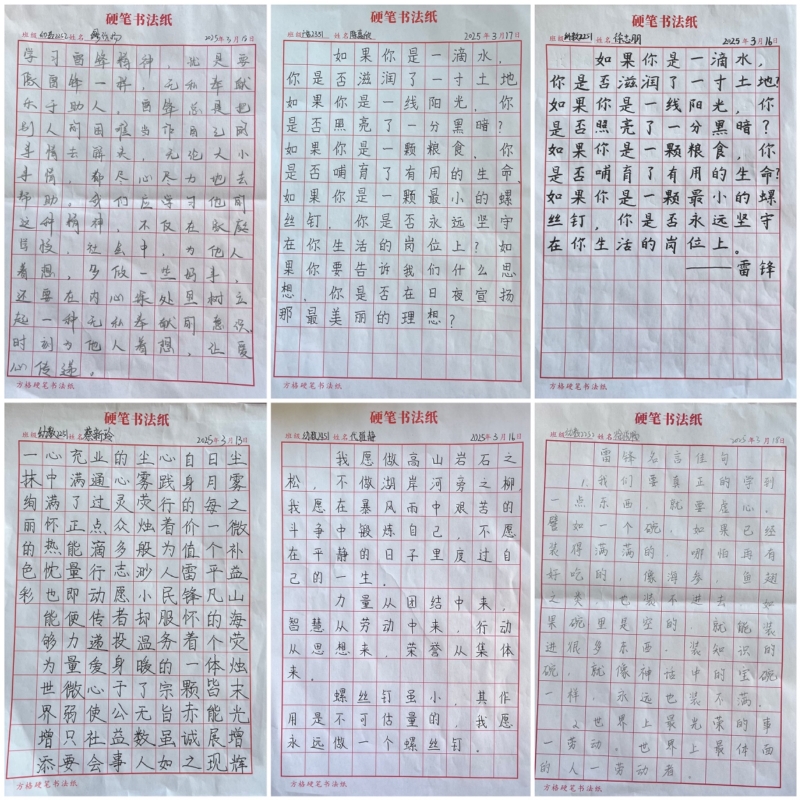 硬笔书法纸
班级 幼教2252 姓名 2025年3月15日
学习雷锋精神,就是要
像雷锋一样,无私奉献
乐于助人,雷锋总是把
别人的困难当作自己的
事情去解决,无论大小
事情,都尽心尽力地去
帮助,我们应学习他的
这种精神,不仅在家庭
学校,社会中,为他人
着想,多做一些好事,
还要在内心深处里树立
起一种无私奉献的意识,
时刻为他人着想,让爱
心传递。
方格硬笔书法纸
硬笔书法纸
班级 姓名 2025年3月17日
如果你是一滴水,
你是否滋润了一寸土地
如果你是一线阳光,你
是否照亮了一分黑暗?
如果你是一颗粮食,你
是否哺育了有用的生命,
如果你是一颗最小的螺
丝钉,你是否永远坚守
在你生活的岗位上?如
果你要告诉我们什么思
想,你是否在日夜宣扬
那最美丽的理想?
方格硬笔书法纸
硬笔书法纸
班级 幼教2251 姓名 徐志朋 2025年3月16日
如果你是一滴水,
你是否滋润了一寸土地?
如果你是一线阳光,你
是否照亮了一分黑暗?
如果你是一颗粮食,你
是否哺育了有用的生命?
如果你是一颗最小的螺
丝钉,你是否永远坚守
在你生活的岗位上。
——雷锋
方格硬笔书法纸
硬笔书法纸
班级 幼教2251 姓名 蔡新玲 2025年3月13日
尘雾之微补益山海荧烛末光增辉
日月每一个平凡的个体皆能展现
自身的价值雷锋怀着一颗赤诚之
心践行着为人民服务的宗旨虽如
尘雾荧烛般渺小却温暖了无数人
的心灵众多志愿者投身子公益事
业通过点滴行动传递爱心使社会
充满了正能量即便力量微弱只要
心中满怀热忱也能够为世界增添
一抹绚丽的色彩
方格硬笔书法纸
硬笔书法纸
班级 幼教2251 姓名 代雅静 2025年3月16日
我愿做高山岩石之
松,不做湖岸河旁之柳,
我愿在暴风雨中艰苦的
斗争中锻炼自己,不愿
在平静的日子里度过自
己的一生。
力量从团结中来,
智慧从劳动中来,行动
从思想来,荣誉从集体
来。
螺丝钉虽小,其作
用是不可估量的,我愿
永远做一个螺丝钉。
方格硬笔书法纸
硬笔书法纸
班级 幼教2252 姓名 2025年3月15日
雷锋名言佳句
1.我们要真正的学到
一点东西,就要虚心。
譬如一个碗,如果已经
装得满满的,哪怕再有
好吃的,像海参,鱼翅
之类,也装不进去,如
果碗里是空的,就能装
进很多东西。装知识的
碗,就像神话中的宝碗
一样,永远也装不满。
2.世界上最光荣的事
一劳动。世界上最体面
的人一劳动者。
方格硬笔书法纸